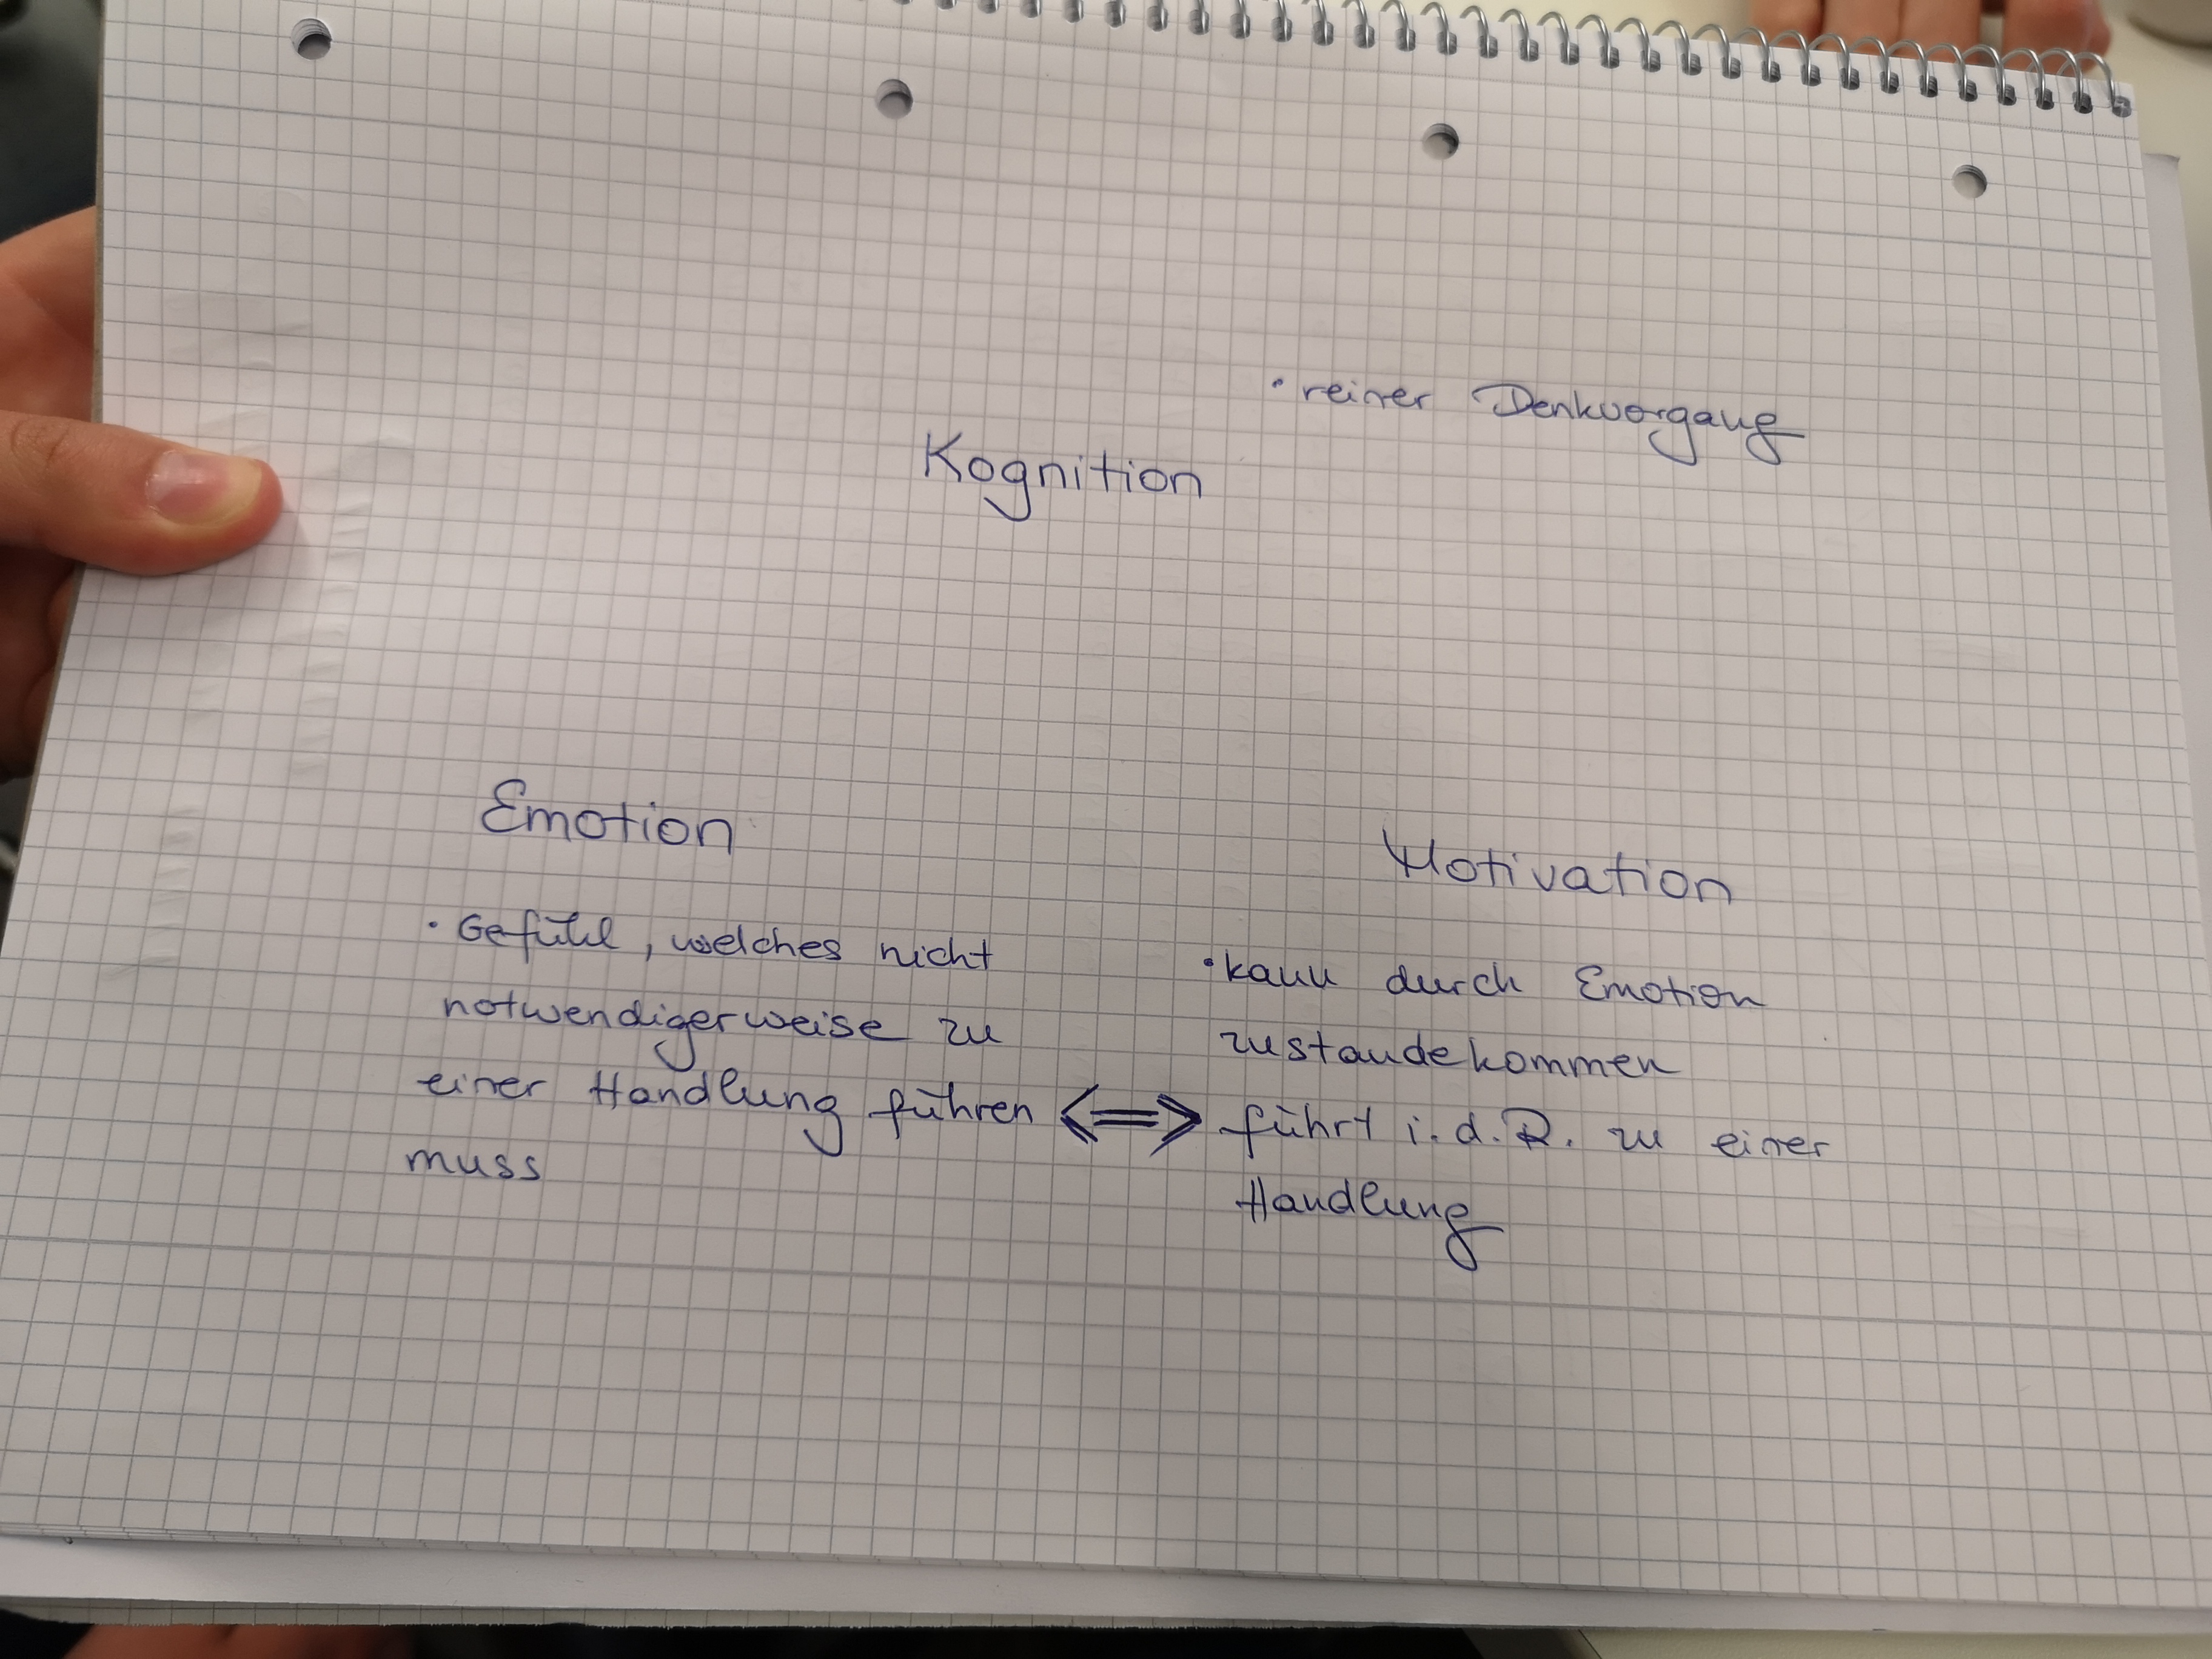 • reiner Denkvorgang
Kognition
Emotion
• Gefühl, welches nicht
notwendigerweise zu
einer Handlung führen ⟺
muss
Motivation
• kann durch Emotion
zustandekommen
führt i.d.R. zu einer
Handlung